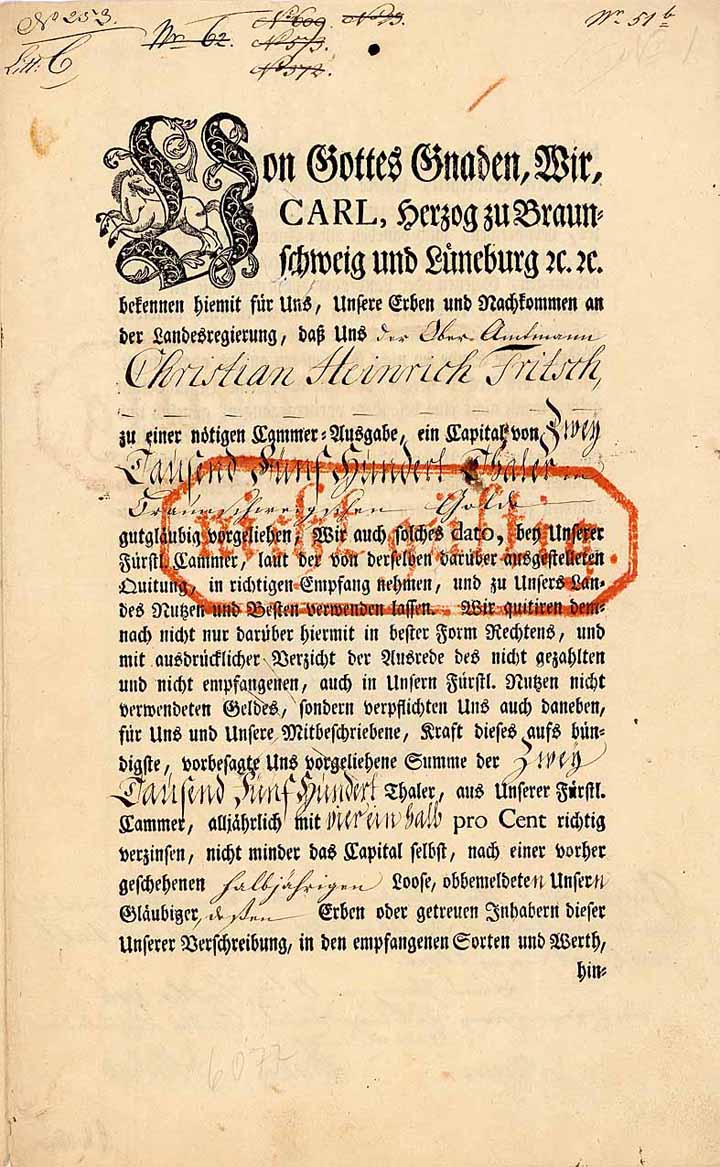 No 253.
Nr 62.
No 609.
No 573.
No 372.
No 23.
Nr. 51 b
Litt: C
Von Gottes Gnaden, Wir,
CARL, Herzog zu Braun-
schweig und Lüneburg ꝛc. ꝛc.
bekennen hiemit für Uns, Unsere Erben und Nachkommen an
der Landesregierung, daß Uns der Ober-Amtmann
Christian Heinrich Fritsch,
zu einer nötigen Cammer-Ausgabe, ein Capital von Zwey
Tausend Fünf Hundert Thaler in
Braunschweigschen Golde
gutgläubig vorgeliehen, Wir auch solches dato, bey Unserer
nicht gültig.
Fürstl. Cammer, laut der von derselben darüber ausgestelleten
Quitung, in richtigen Empfang nehmen, und zu Unsers Lan-
des Nutzen und Besten verwenden lassen. Wir quitiren dem-
nach nicht nur darüber hiermit in bester Form Rechtens, und
mit ausdrücklicher Verzicht der Ausrede des nicht gezahlten
und nicht empfangenen, auch in Unsern Fürstl. Nutzen nicht
verwendeten Geldes, sondern verpflichten Uns auch daneben,
für Uns und Unsere Mitbeschriebene, Kraft dieses aufs bün-
digste, vorbesagte Uns vorgeliehene Summe der Zwey
Tausend Fünf Hundert Thaler, aus Unserer Fürstl.
Cammer, alljährlich mit vier ein halb pro Cent richtig
verzinsen, nicht minder das Capital selbst, nach einer vorher
geschehenen halbjährigen Loose, obbemeldeten Unsern
Gläubiger, deßen Erben oder getreuen Inhabern dieser
Unserer Verschreibung, in den empfangenen Sorten und Werth,
hin-
6077